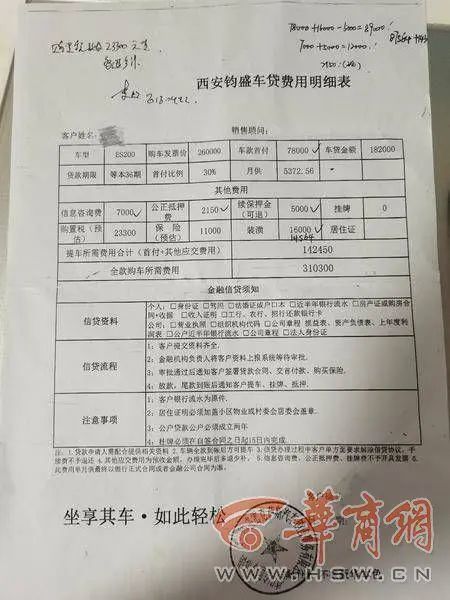 78000 + 16000 - 5000 = 89000
7000 + 5000 = 12000
西安钧盛车贷费用明细表
客户姓名 销售顾问：
车型 ES200 购车发票价 260000 车款首付 78000 车贷金额 182000
贷款期限 等本36期 首付比例 30% 月供 5372.56
其他费用
信息咨询费 7000 公正抵押费 2150 续保押金(可退) 5000 挂牌 0
购置税(预估) 23300 保险(预估) 11000 装潢 16000 居住证
14564
提车所需费用合计（首付+其他应交费用） 142450
全款购车所需费用 310300
金融信贷须知
信贷资料
个人：□身份证 □驾照 □结婚证或户口本 □近半年银行流水 □房产证或购房合同+收据 □收入证明 □工行、农行、招行还款银行卡
公司：□营业执照 □组织机构代码 □公司章程 损益表、资产负债表、上年度利润表 □公户近半年银行流水 □公司章程 □法人身份证
信贷流程
1：客户提交资料齐全.
2：金融机构负责人将客户资料上报系统等待审批.
3：审批通过后通知客户签署贷款合同、交首付款、购买保险.
4：放款，尾款到账后通知客户提车、挂牌、抵押.
注意事项
1：客户银行流水为原件.
2：居住证明必须加盖小区物业或村委会居委会盖章.
3：公户贷款公户必须成立两年
4：挂牌必须在自签合同之日起15日内完成.
注：1.贷款申请人需配合提供相关资料 2.车辆全款到账后方可提车 3.信贷办理过程中客户单方面要求解除信贷协议，手续费不予退还 4.其他应交费用为预收金额，办理完毕后多退少补。5.信息咨询费、公正抵押费、挂牌费不予开具发票 6.此费用单月供最终以银行正式合同或者金融公司合同为准。
坐享其车·如此轻松
华商网
WWW.HSW.CN